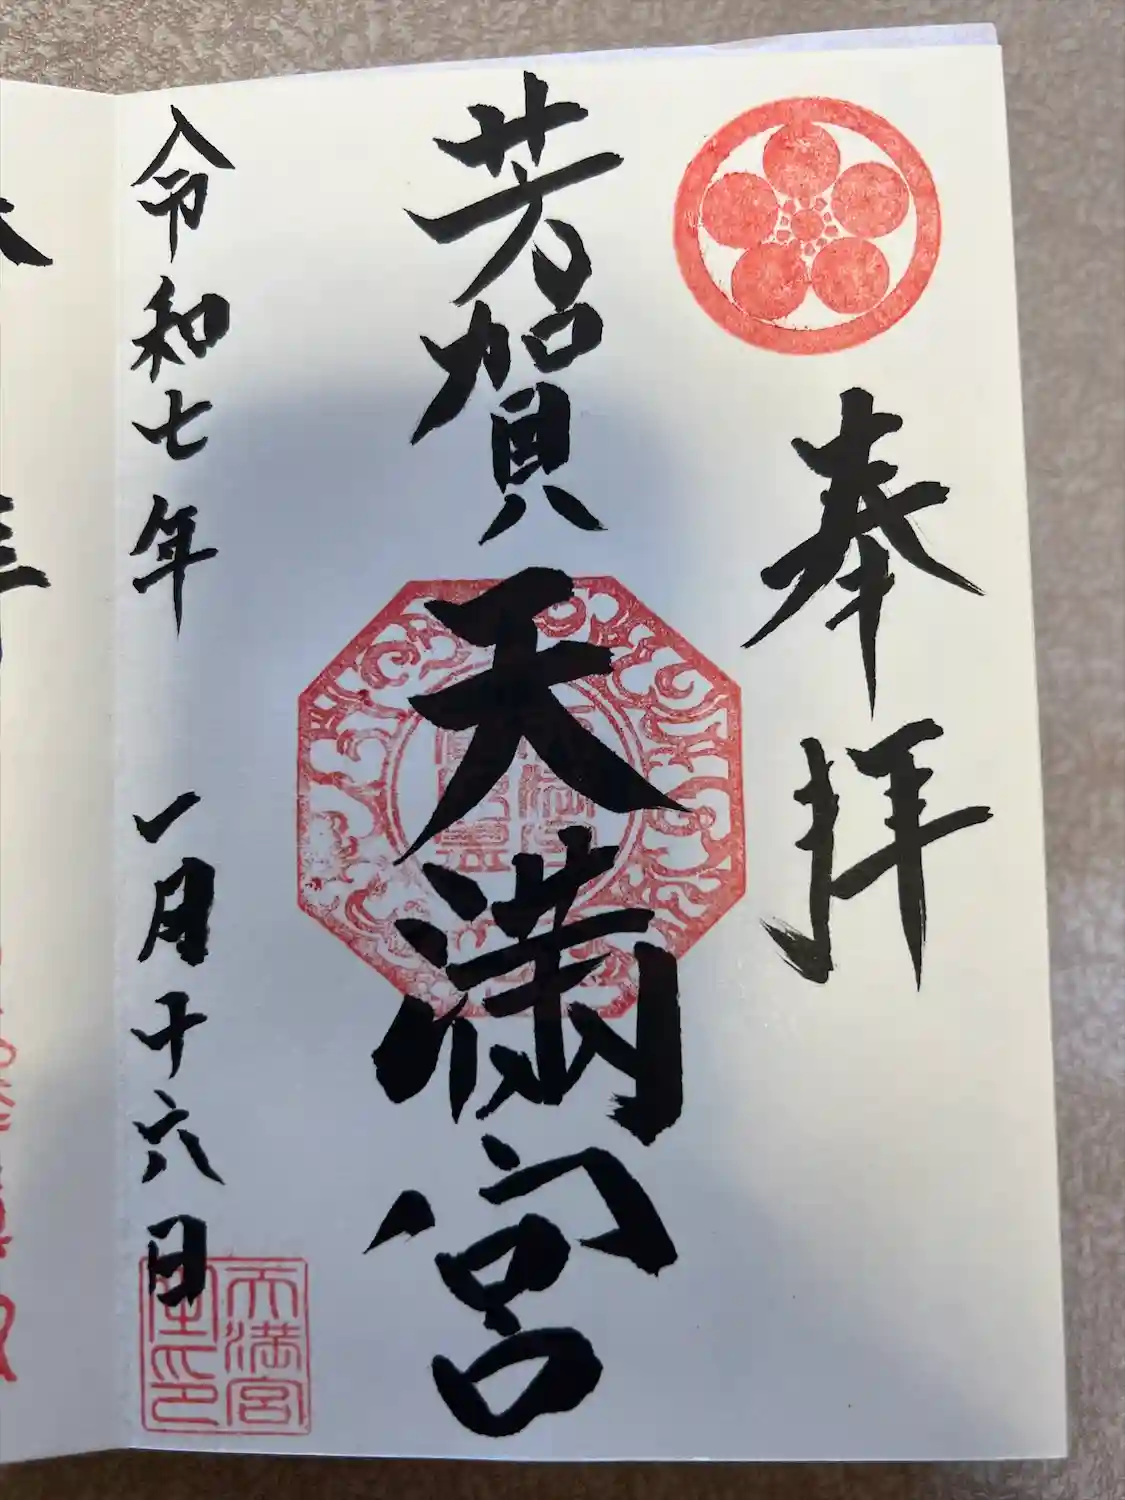 奉拝
芳賀天満宮
令和七年 一月十六日
天満宮